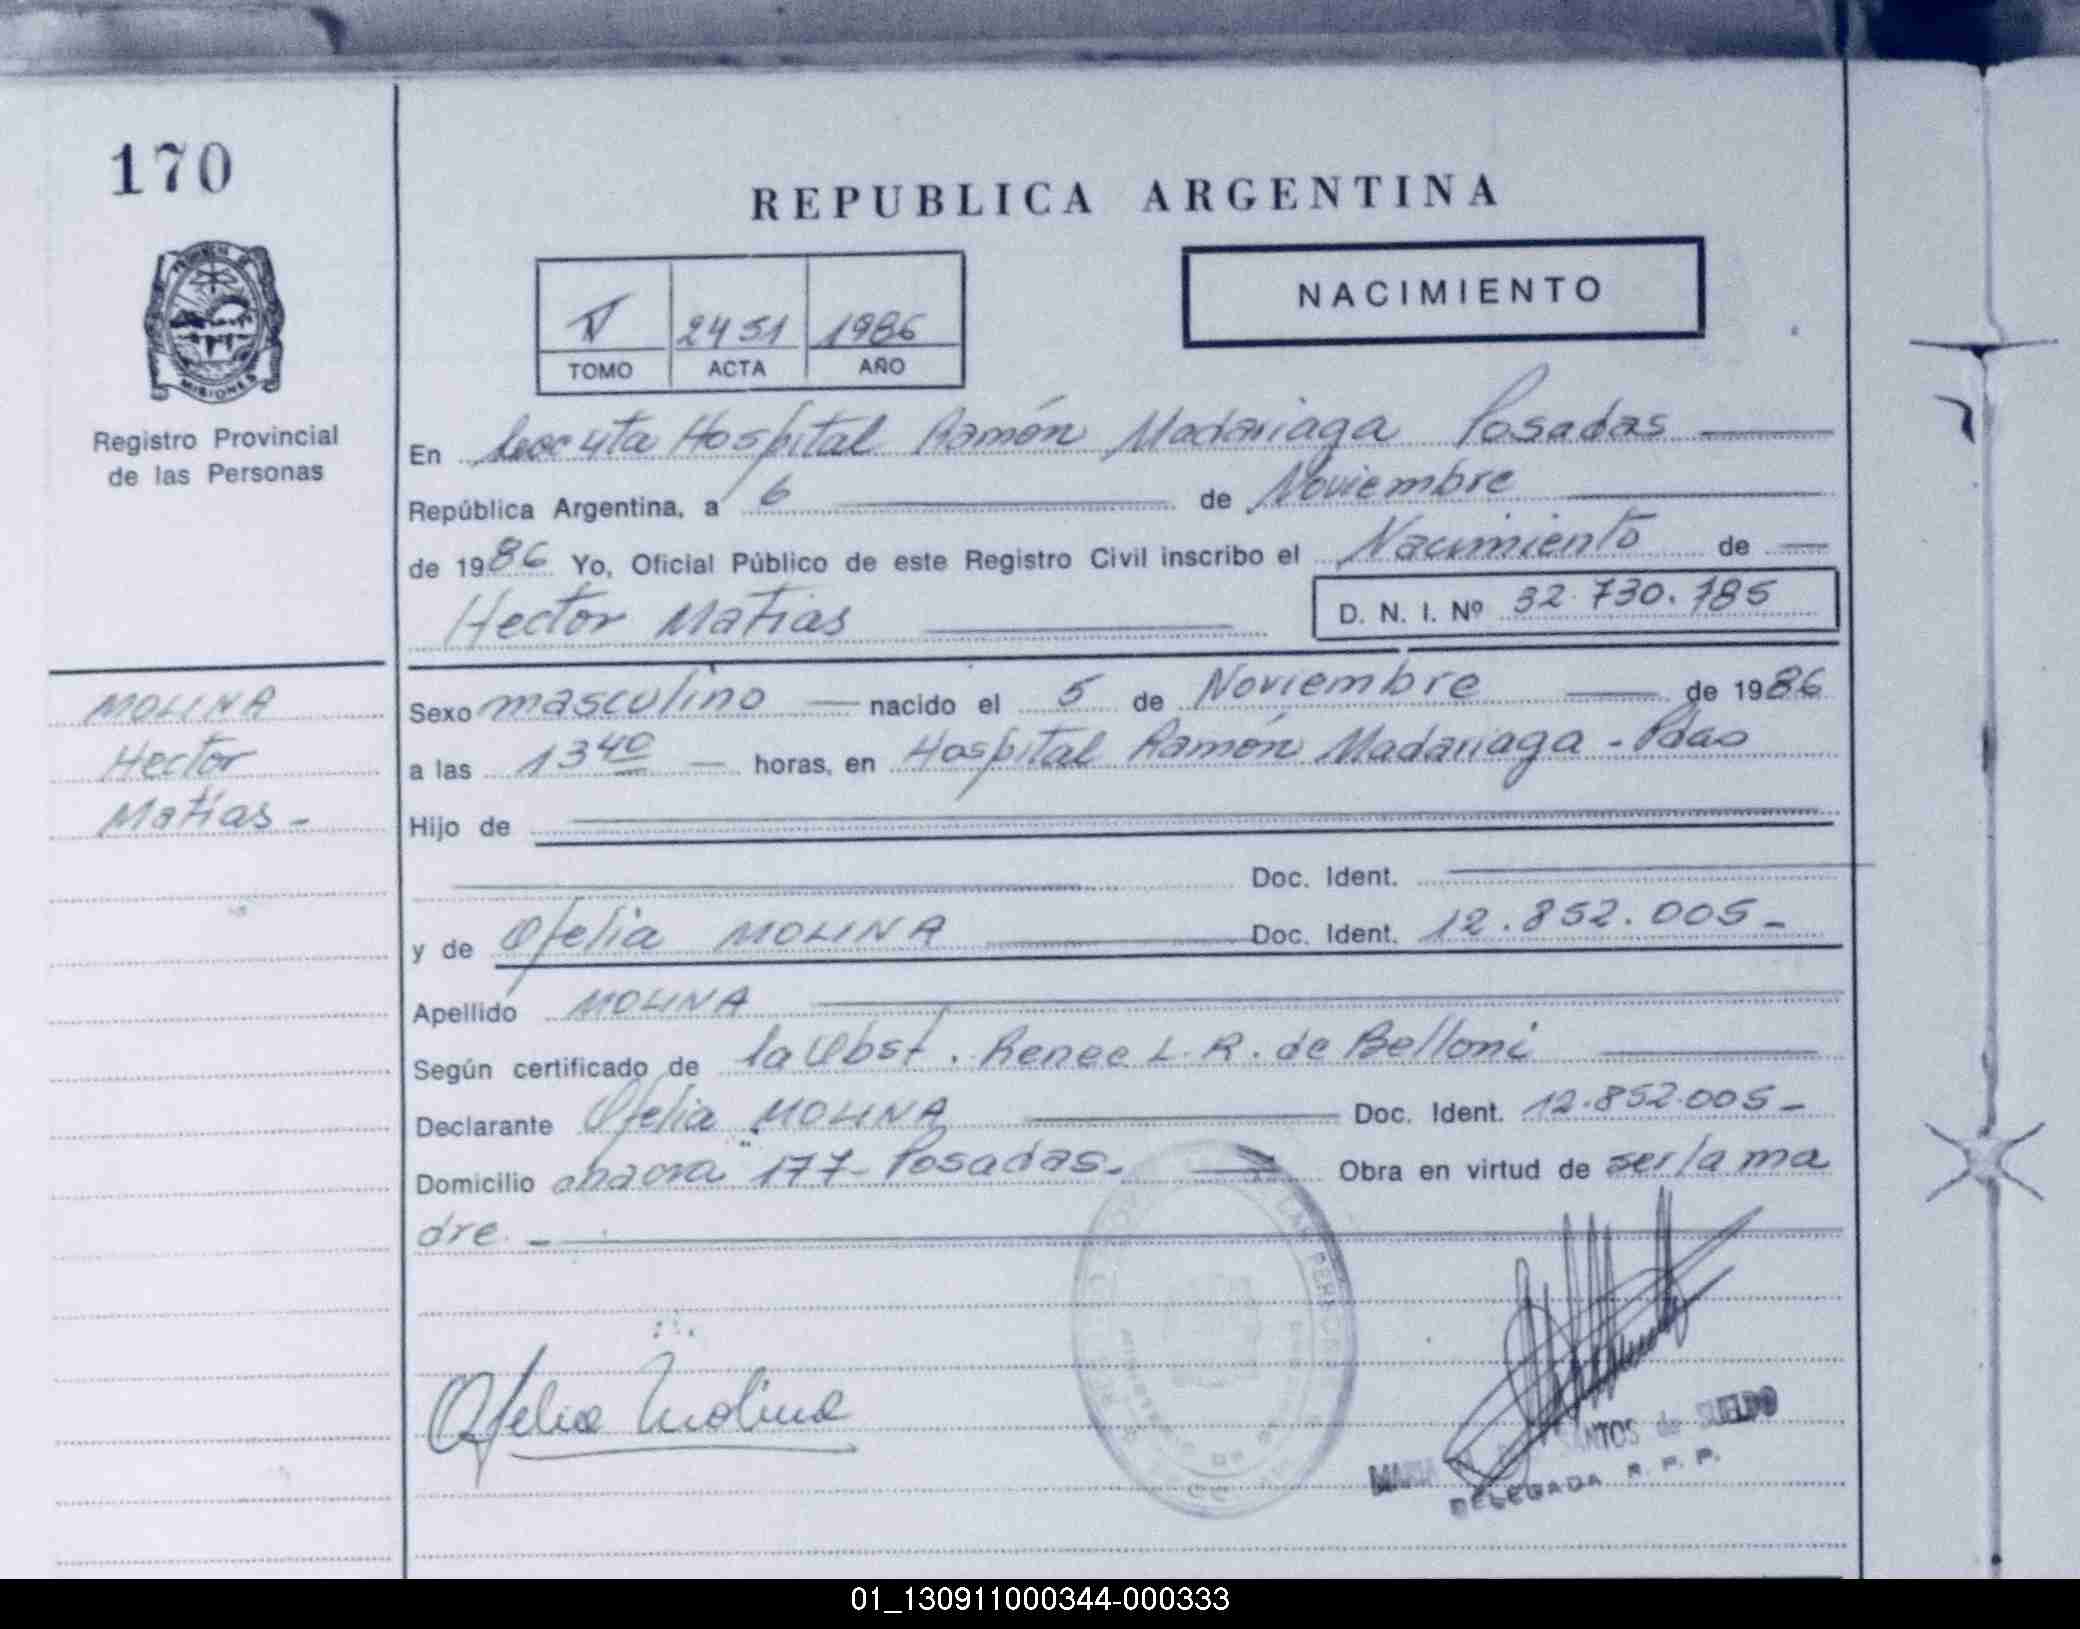 170
REPUBLICA ARGENTINA
NACIMIENTO
V 2451 1986
TOMO ACTA AÑO
PROVINCIA DE
MISIONES
Registro Provincial
de las Personas
En Hospital Ramón Madariaga Posadas
República Argentina, a 6 de Noviembre
de 1986 Yo, Oficial Público de este Registro Civil inscribo el Nacimiento de
Hector Matias D. N. I. Nº 32.730.785
MOLINA
Hector
Matias -
Sexo masculino nacido el 5 de Noviembre de 1986
a las 13 40 horas, en Hospital Ramón Madariaga - Pdas
Hijo de
Doc. Ident.
y de Ofelia MOLINA Doc. Ident. 12.852.005 -
Apellido MOLINA
Según certificado de la Obst. Renee L. R. de Belloni
Declarante Ofelia MOLINA Doc. Ident. 12.852.005 -
Domicilio chacra 177 - Posadas. Obra en virtud de ser la ma
dre. -
Ofelia Molina
MARIA SANTOS de SUELDO
DELEGADA R. P. P.
01_130911000344-000333